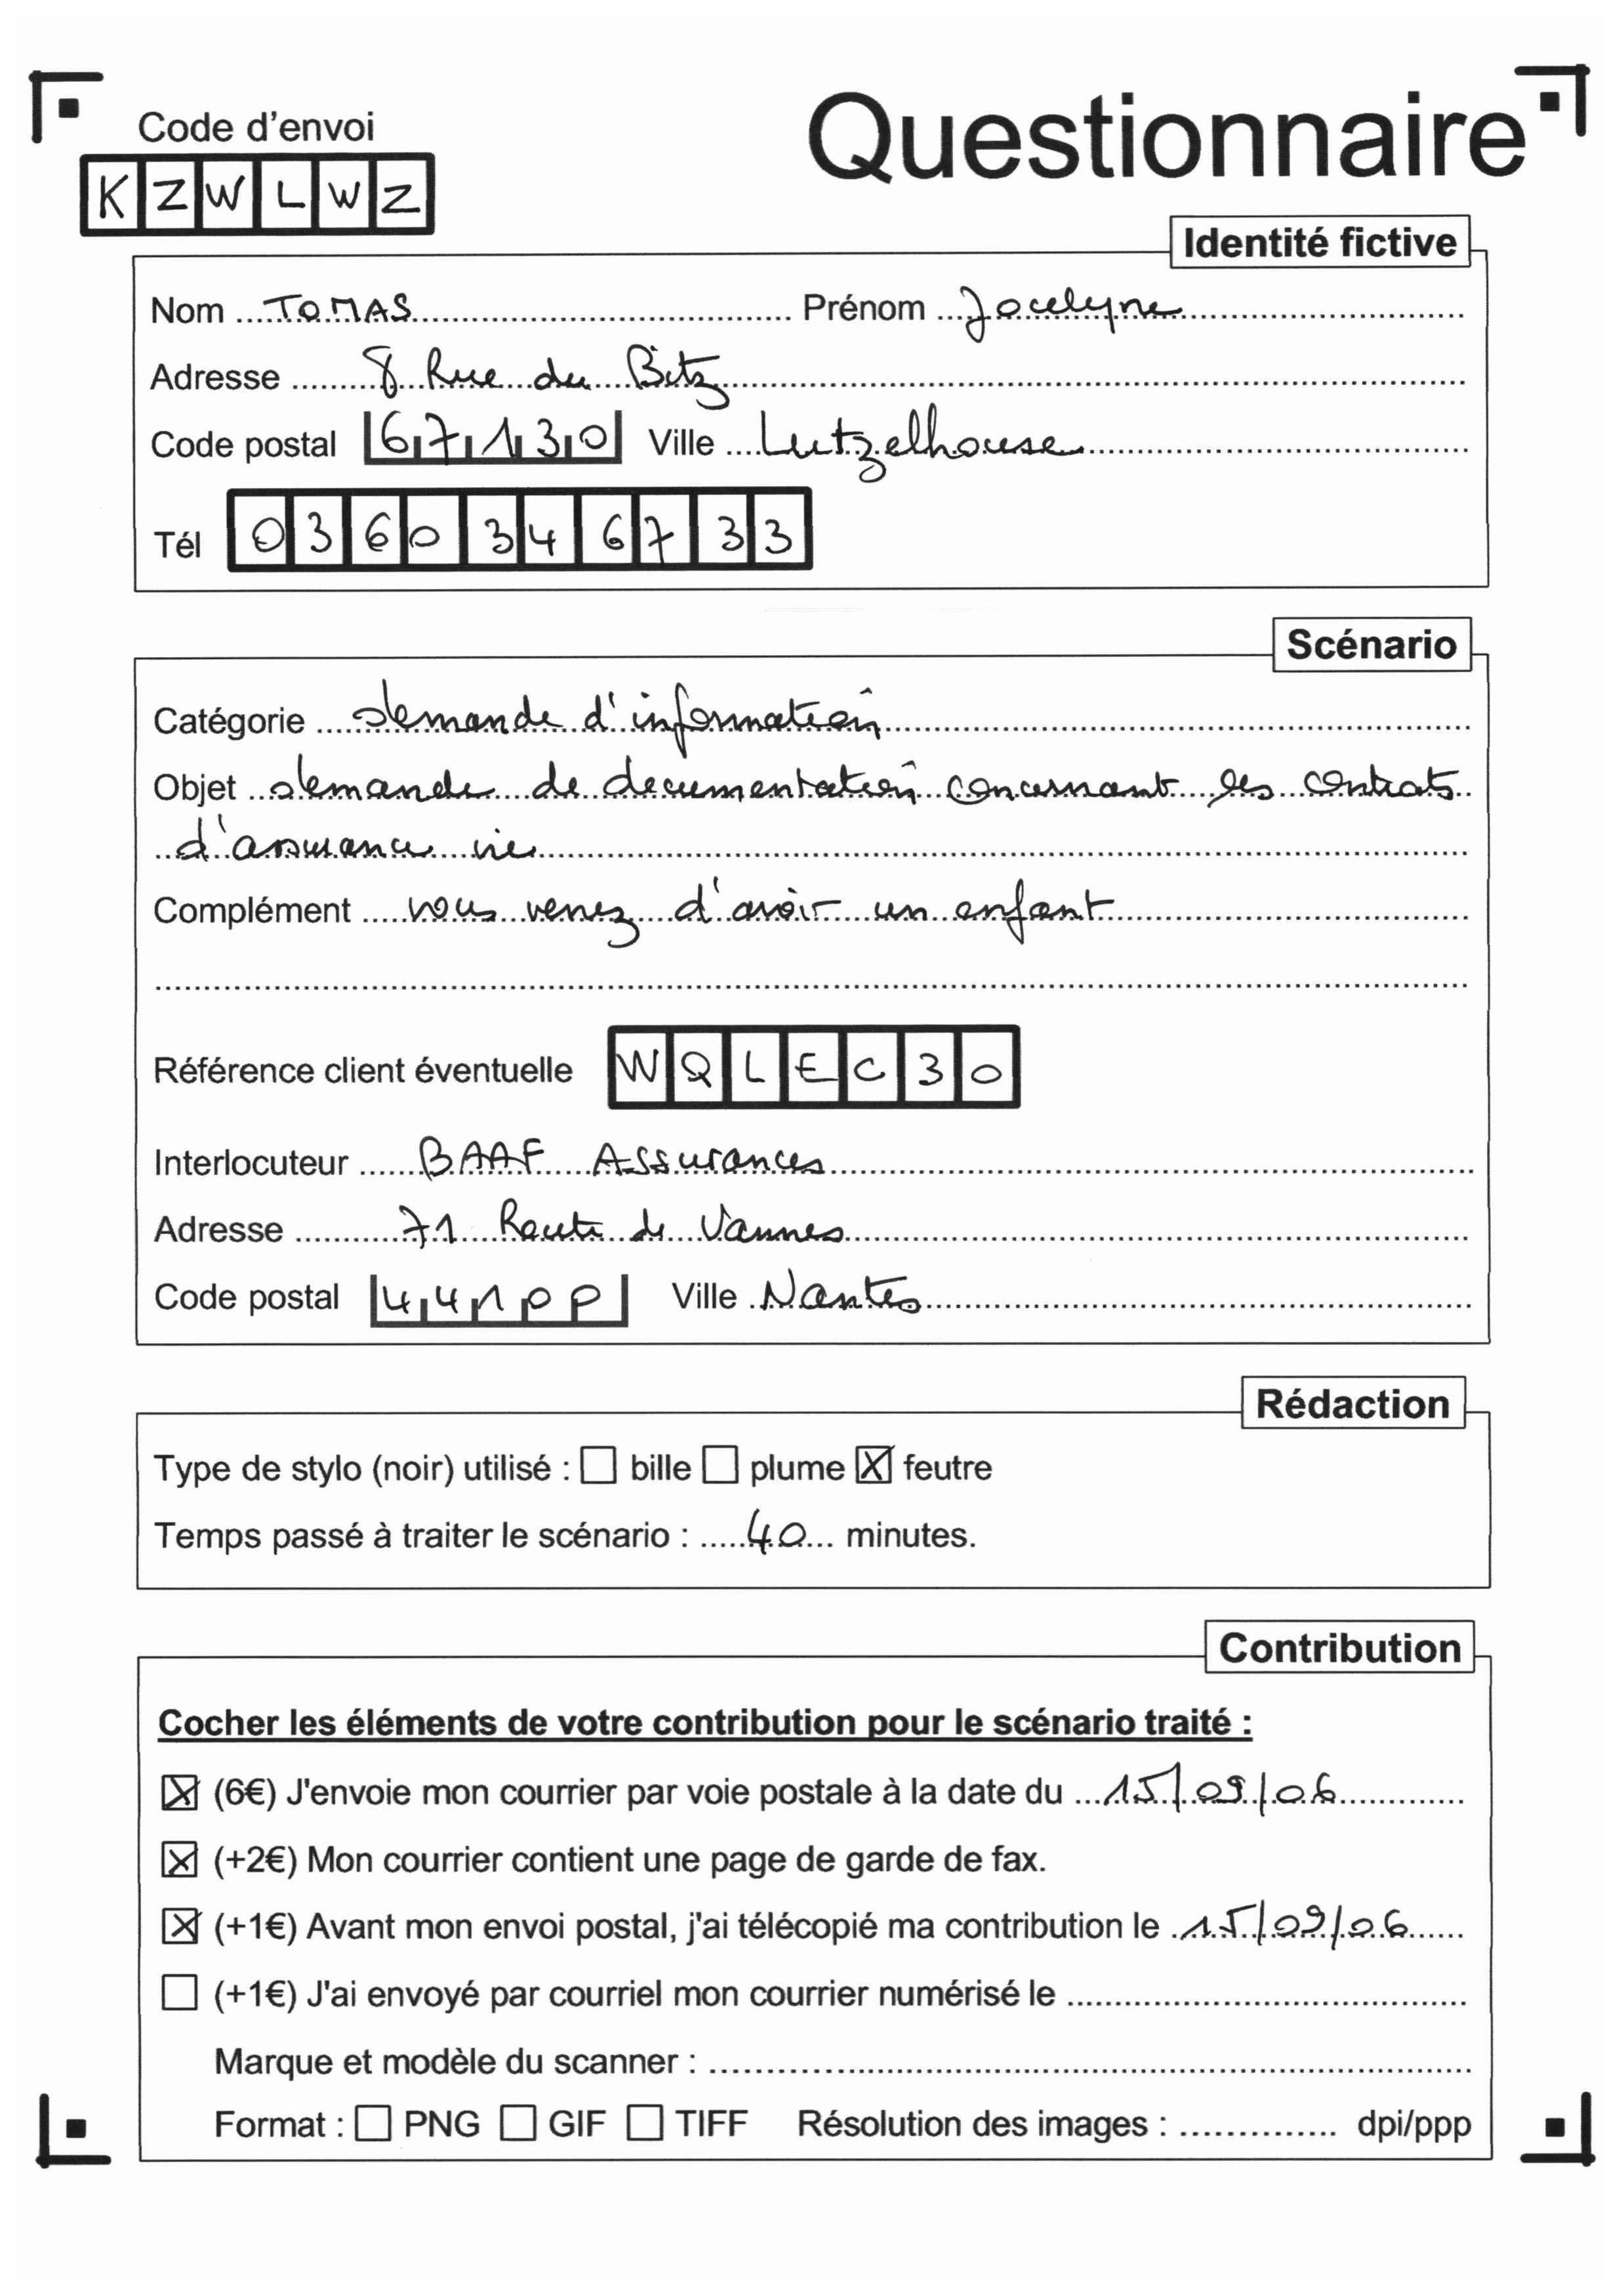 Code d'envoi
Questionnaire
K Z W L W Z
Identité fictive
Nom TOMAS Prénom Jocelyne
Adresse 8 Rue du Bitz
Code postal 67130 Ville Lutzelhouse
Tél 03 60 34 67 33
Scénario
Catégorie demande d'information
Objet demande de documentation concernant les contrats
d'assurance vie
Complément vous venez d'avoir un enfant
Référence client éventuelle W Q L E C 3 0
Interlocuteur BAAF Assurances
Adresse 71 Route de Vannes
Code postal 44100 Ville Nantes
Rédaction
Type de stylo (noir) utilisé : ☐ bille ☐ plume ☒ feutre
Temps passé à traiter le scénario : 40 minutes.
Contribution
Cocher les éléments de votre contribution pour le scénario traité :
☒ (6€) J'envoie mon courrier par voie postale à la date du 15/09/06
☒ (+2€) Mon courrier contient une page de garde de fax.
☒ (+1€) Avant mon envoi postal, j'ai télécopié ma contribution le 15/09/06
☐ (+1€) J'ai envoyé par courriel mon courrier numérisé le
Marque et modèle du scanner :
Format : ☐ PNG ☐ GIF ☐ TIFF Résolution des images : dpi/ppp